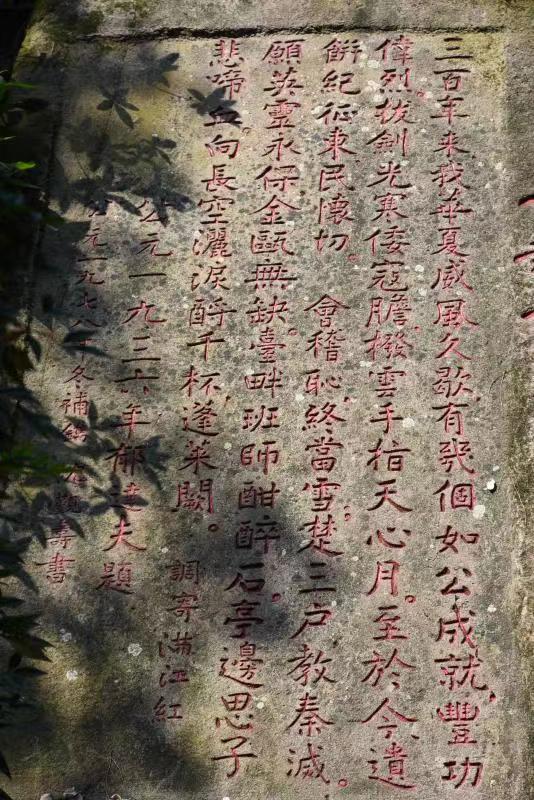 三百年来,我華夏威風久歇,有幾個如公成就,豐功
偉烈。拔劍光寒倭寇膽,撥雲手指天心月。至於今,遺
餅紀征東民懷切。會稽恥,終當雪;楚三户,教秦滅。
願英靈永保金甌無缺。臺畔班師酣醉石,亭邊思子
悲啼血。向長空灑淚酹千杯,蓬萊闕。調寄满江紅
公元一九三六年郁達夫題
公元一九七八年冬補鐫 壽書